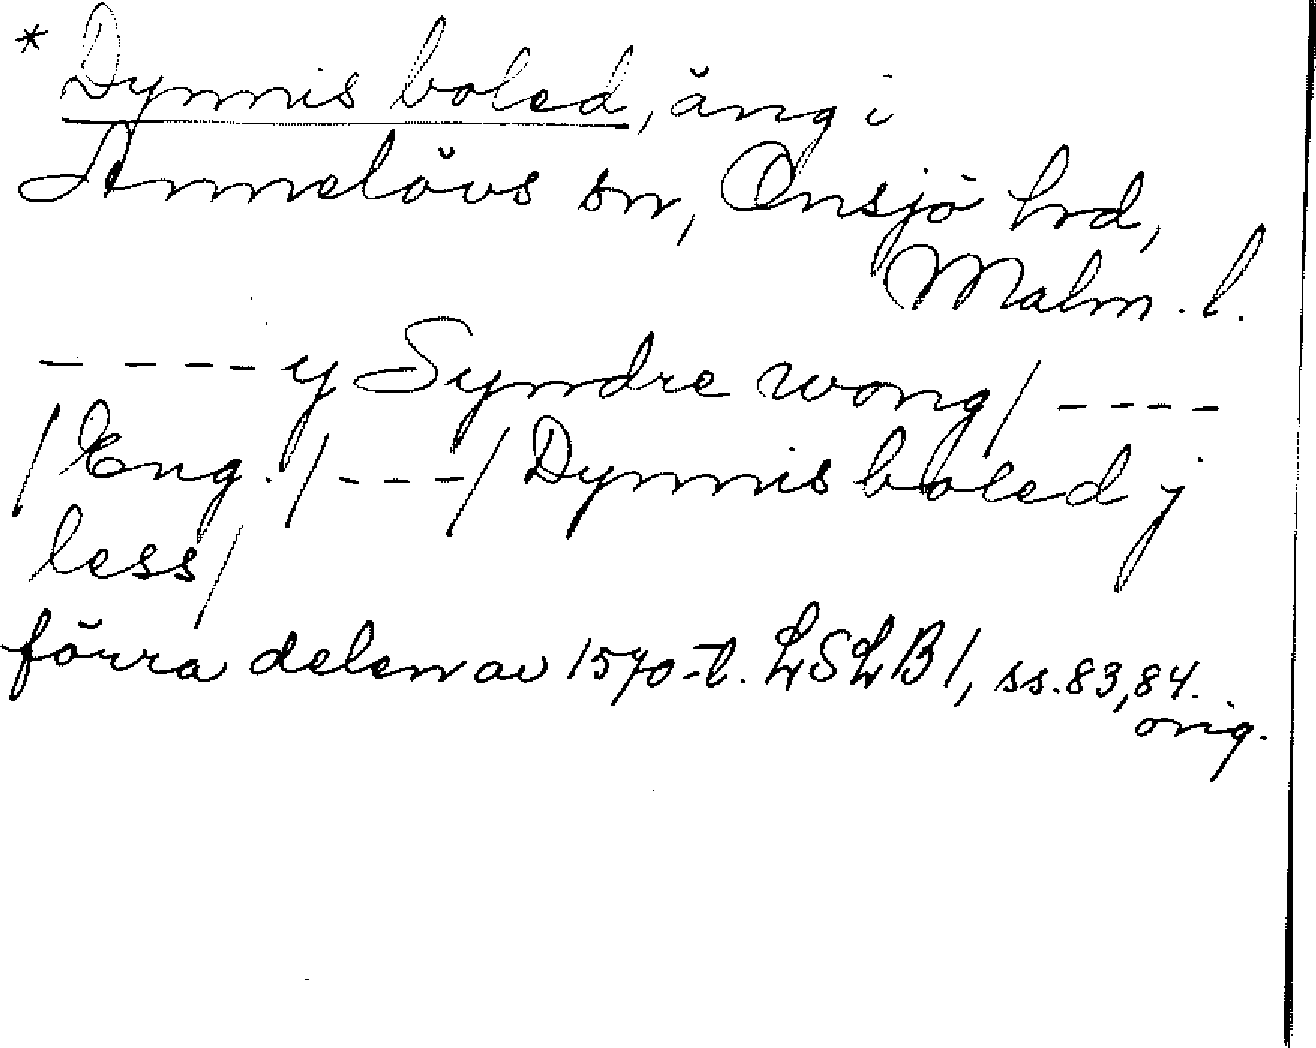 * Dynnis boled, äng i
Annelövs sn, Onsjö hrd,
Malm. l.
- - - - y Syndre wong/ - - - -
/Eng./ - - - / Dynnis boled j
less/
förra delen av 1570-t. LSLB1, ss. 83, 84.
orig.